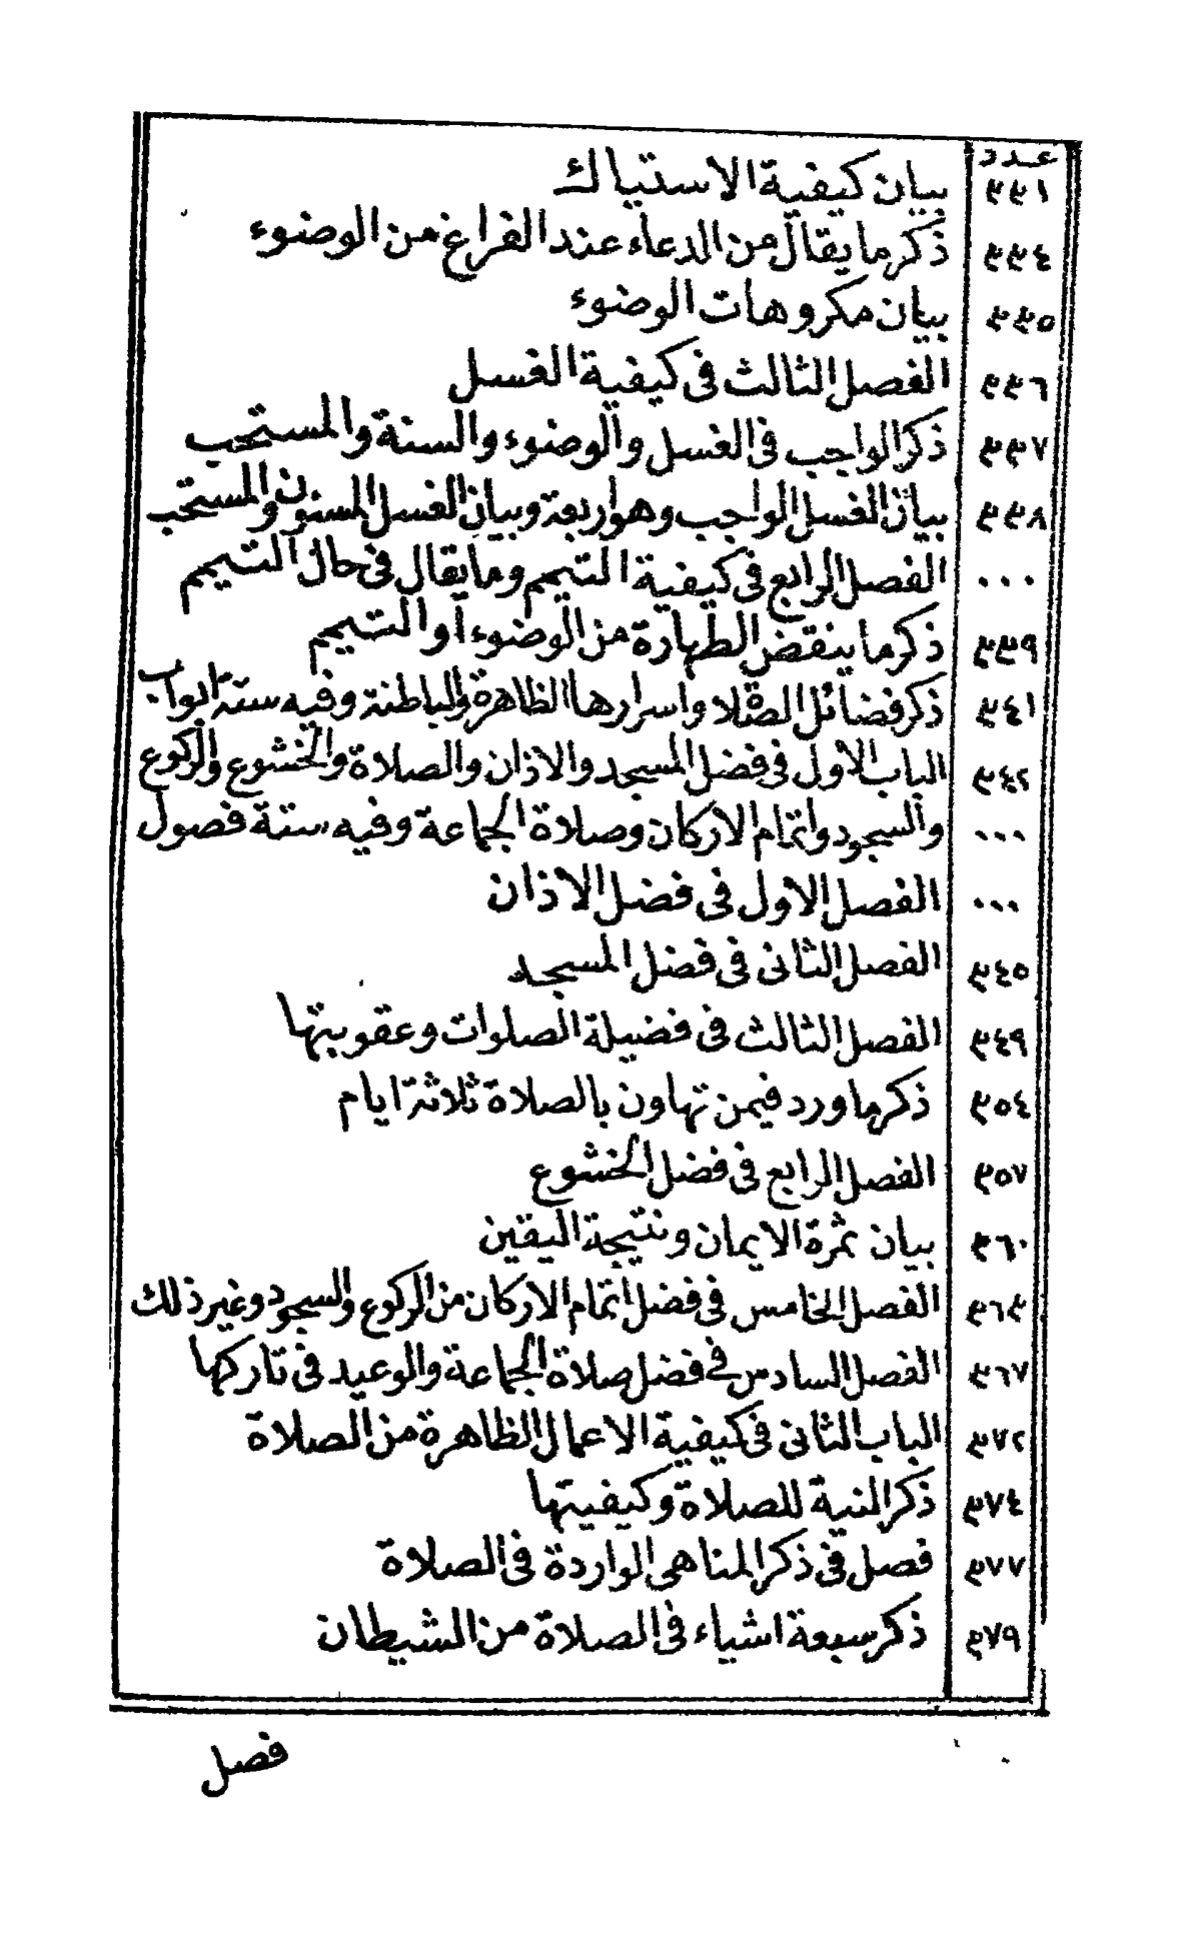 عدد
٣٣١ بيان كيفية الاستياك
٣٣٤ ذكر ما يقال من الدعاء عند الفراغ من الوضوء
٣٣٥ بيان مكروهات الوضوء
٣٣٦ الفصل الثالث فى كيفية الغسل
٣٣٧ ذكر الواجب فى الغسل والوضوء والسنة والمستحب
٣٣٨ بيان الغسل الواجب وهو اربعة وبيان الغسل المسنون والمستحب
... الفصل الرابع فى كيفية التيمم وما يقال فى حال التيمم
٣٣٩ ذكر ما ينقض الطهارة من الوضوء أو التيمم
٣٤١ ذكر فضائل الصلاة واسرارها الظاهرة والباطنة وفيه ستة ابواب
٣٤٢ الباب الأول فى فضل المسجد والاذان والصلاة والخشوع والركوع
... والسجود واتمام الاركان وصلاة الجماعة وفيه ستة فصول
... الفصل الاول فى فضل الاذان
٣٤٥ الفصل الثانى فى فضل المسجد
٣٤٩ الفصل الثالث فى فضيلة الصلوات وعقوبتها
٣٥٤ ذكر ما ورد فيمن تهاون بالصلاة ثلاثة ايام
٣٥٧ الفصل الرابع فى فضل الخشوع
٣٦٠ بيان ثمرة الايمان ونتيجة اليقين
٣٦٣ الفصل الخامس فى فضل اتمام الاركان من الركوع والسجود وغير ذلك
٣٦٧ الفصل السادس فى فضل صلاة الجماعة والوعيد فى تاركها
٣٧٢ الباب الثانى فى كيفية الاعمال الظاهرة من الصلاة
٣٧٤ ذكر النية للصلاة وكيفيتها
٣٧٧ فصل فى ذكر المناهى الواردة فى الصلاة
٣٧٩ ذكر سبعة اشياء فى الصلاة من الشيطان
فصل